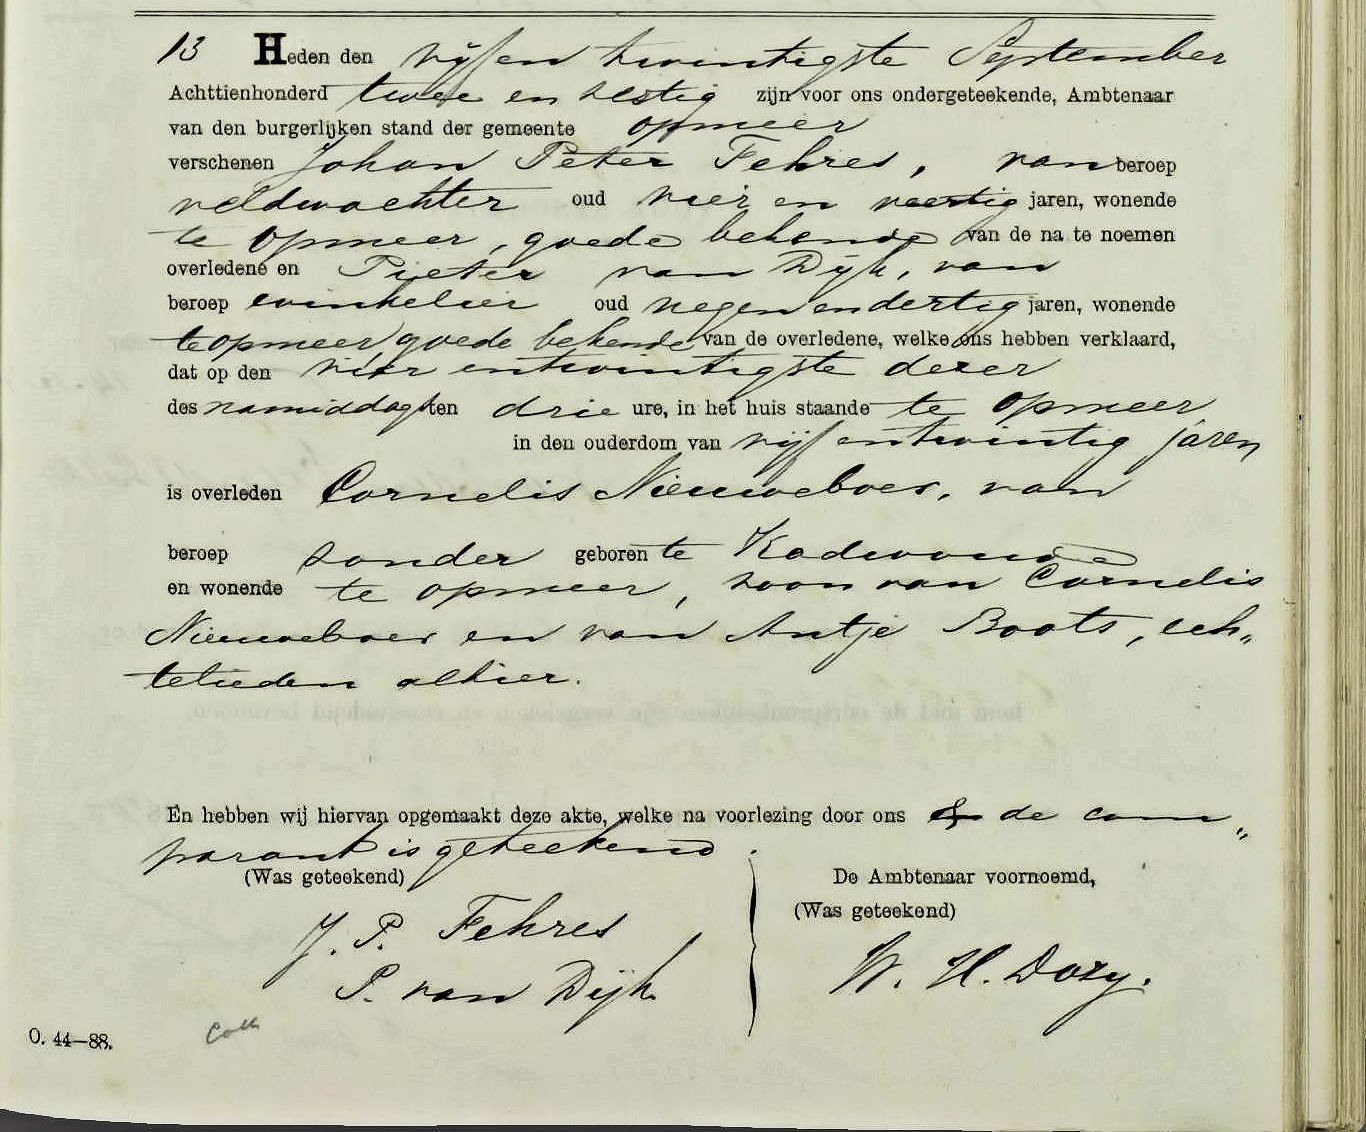 13 Heden den vijf en twintigste September
Achttienhonderd twee en zestig zijn voor ons ondergeteekende, Ambtenaar
van den burgerlijken stand der gemeente Opmeer
verschenen Johan Peter Fehres, van beroep
veldwachter oud vier en veertig jaren, wonende
te Opmeer, goede bekende van de na te noemen
overledene en Pieter van Dijk, van
beroep winkelier oud negen en dertig jaren, wonende
te Opmeer goede bekende van de overledene, welke ons hebben verklaard,
dat op den vier en twintigste dezer
des namiddags ten drie ure, in het huis staande te Opmeer
in den ouderdom van vijf en twintig jaren
is overleden Cornelis Nieuweboer, van
beroep zonder geboren te Hadwoude
en wonende te Opmeer, zoon van Cornelis
Nieuweboer en van Antje Boots, ech„
telieden alhier.
En hebben wij hiervan opgemaakt deze akte, welke na voorlezing door ons & de com„
parant is geteekend.
(Was geteekend) De Ambtenaar voornoemd,
(Was geteekend)
J. P. Fehres
P. van Dijk W. H. Dozy.
O. 44—88. Coll